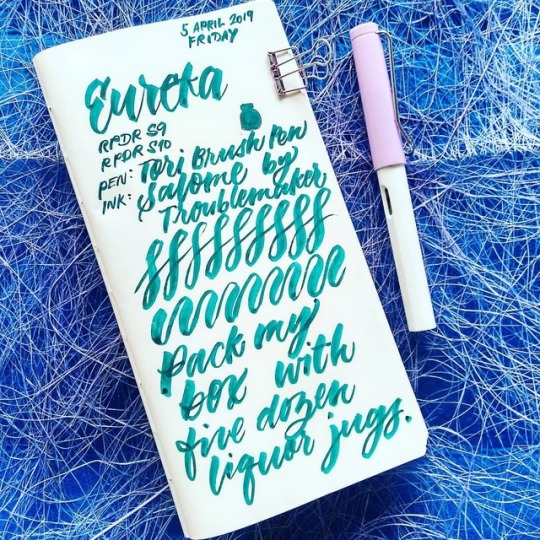 5 APRIL 2019
FRIDAY
Eureka
RPDR S9
RPDR S10
PEN: Tori Brush Pen
INK: Salome by
Troublemaker
Pack my
box with
five dozen
liquor jugs.